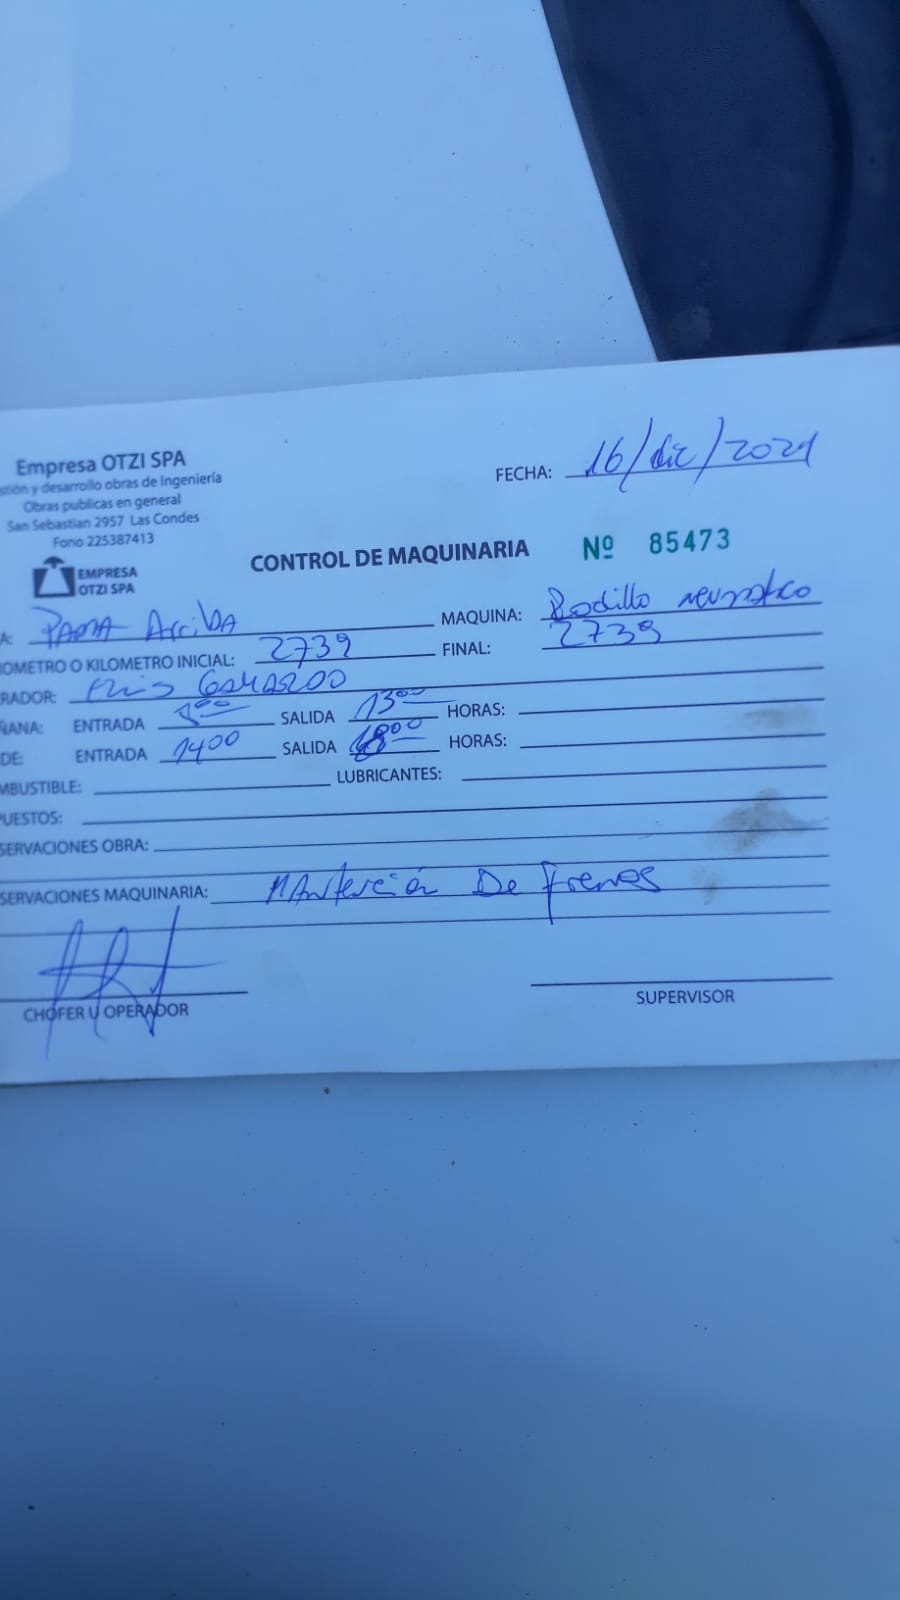 Empresa OTZI SPA
stión y desarrollo obras de Ingeniería
Obras publicas en general
San Sebastian 2957 Las Condes
Fono 225387413
EMPRESA
OTZI SPA
FECHA: 16/dic/2021
CONTROL DE MAQUINARIA Nº 85473
A: PAMA ArribA MAQUINA: Rodillo neumatico
OMETRO O KILOMETRO INICIAL: 2739 FINAL: 2739
RADOR:
ÑANA: ENTRADA 800 SALIDA 1300 HORAS:
DE: ENTRADA 1400 SALIDA 1800 HORAS:
MBUSTIBLE: LUBRICANTES:
PUESTOS:
SERVACIONES OBRA:
SERVACIONES MAQUINARIA: MAntención De frenos
CHOFER U OPERADOR SUPERVISOR